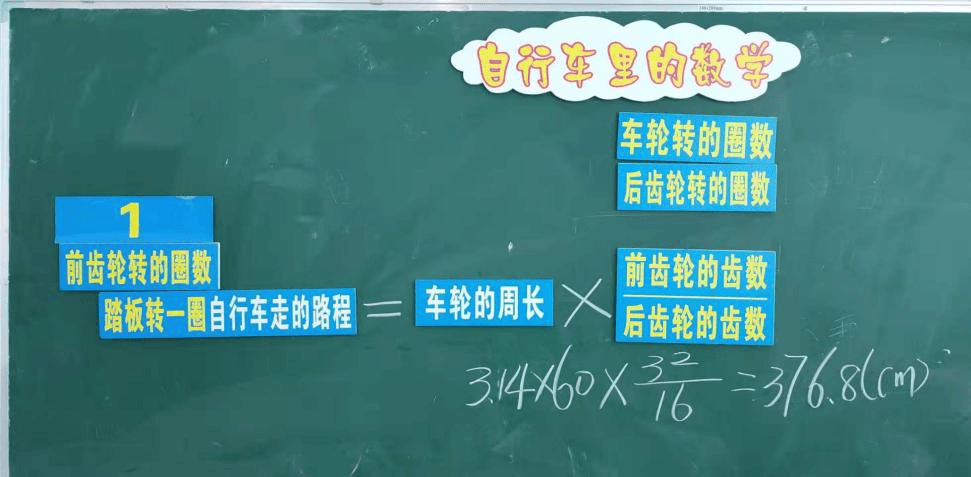 自行车里的数学
车轮转的圈数
后齿轮转的圈数
1
前齿轮转的圈数
踏板转一圈自行车走的路程 = 车轮的周长 × 前齿轮的齿数
后齿轮的齿数
3.14×60×32/16=376.8(cm)